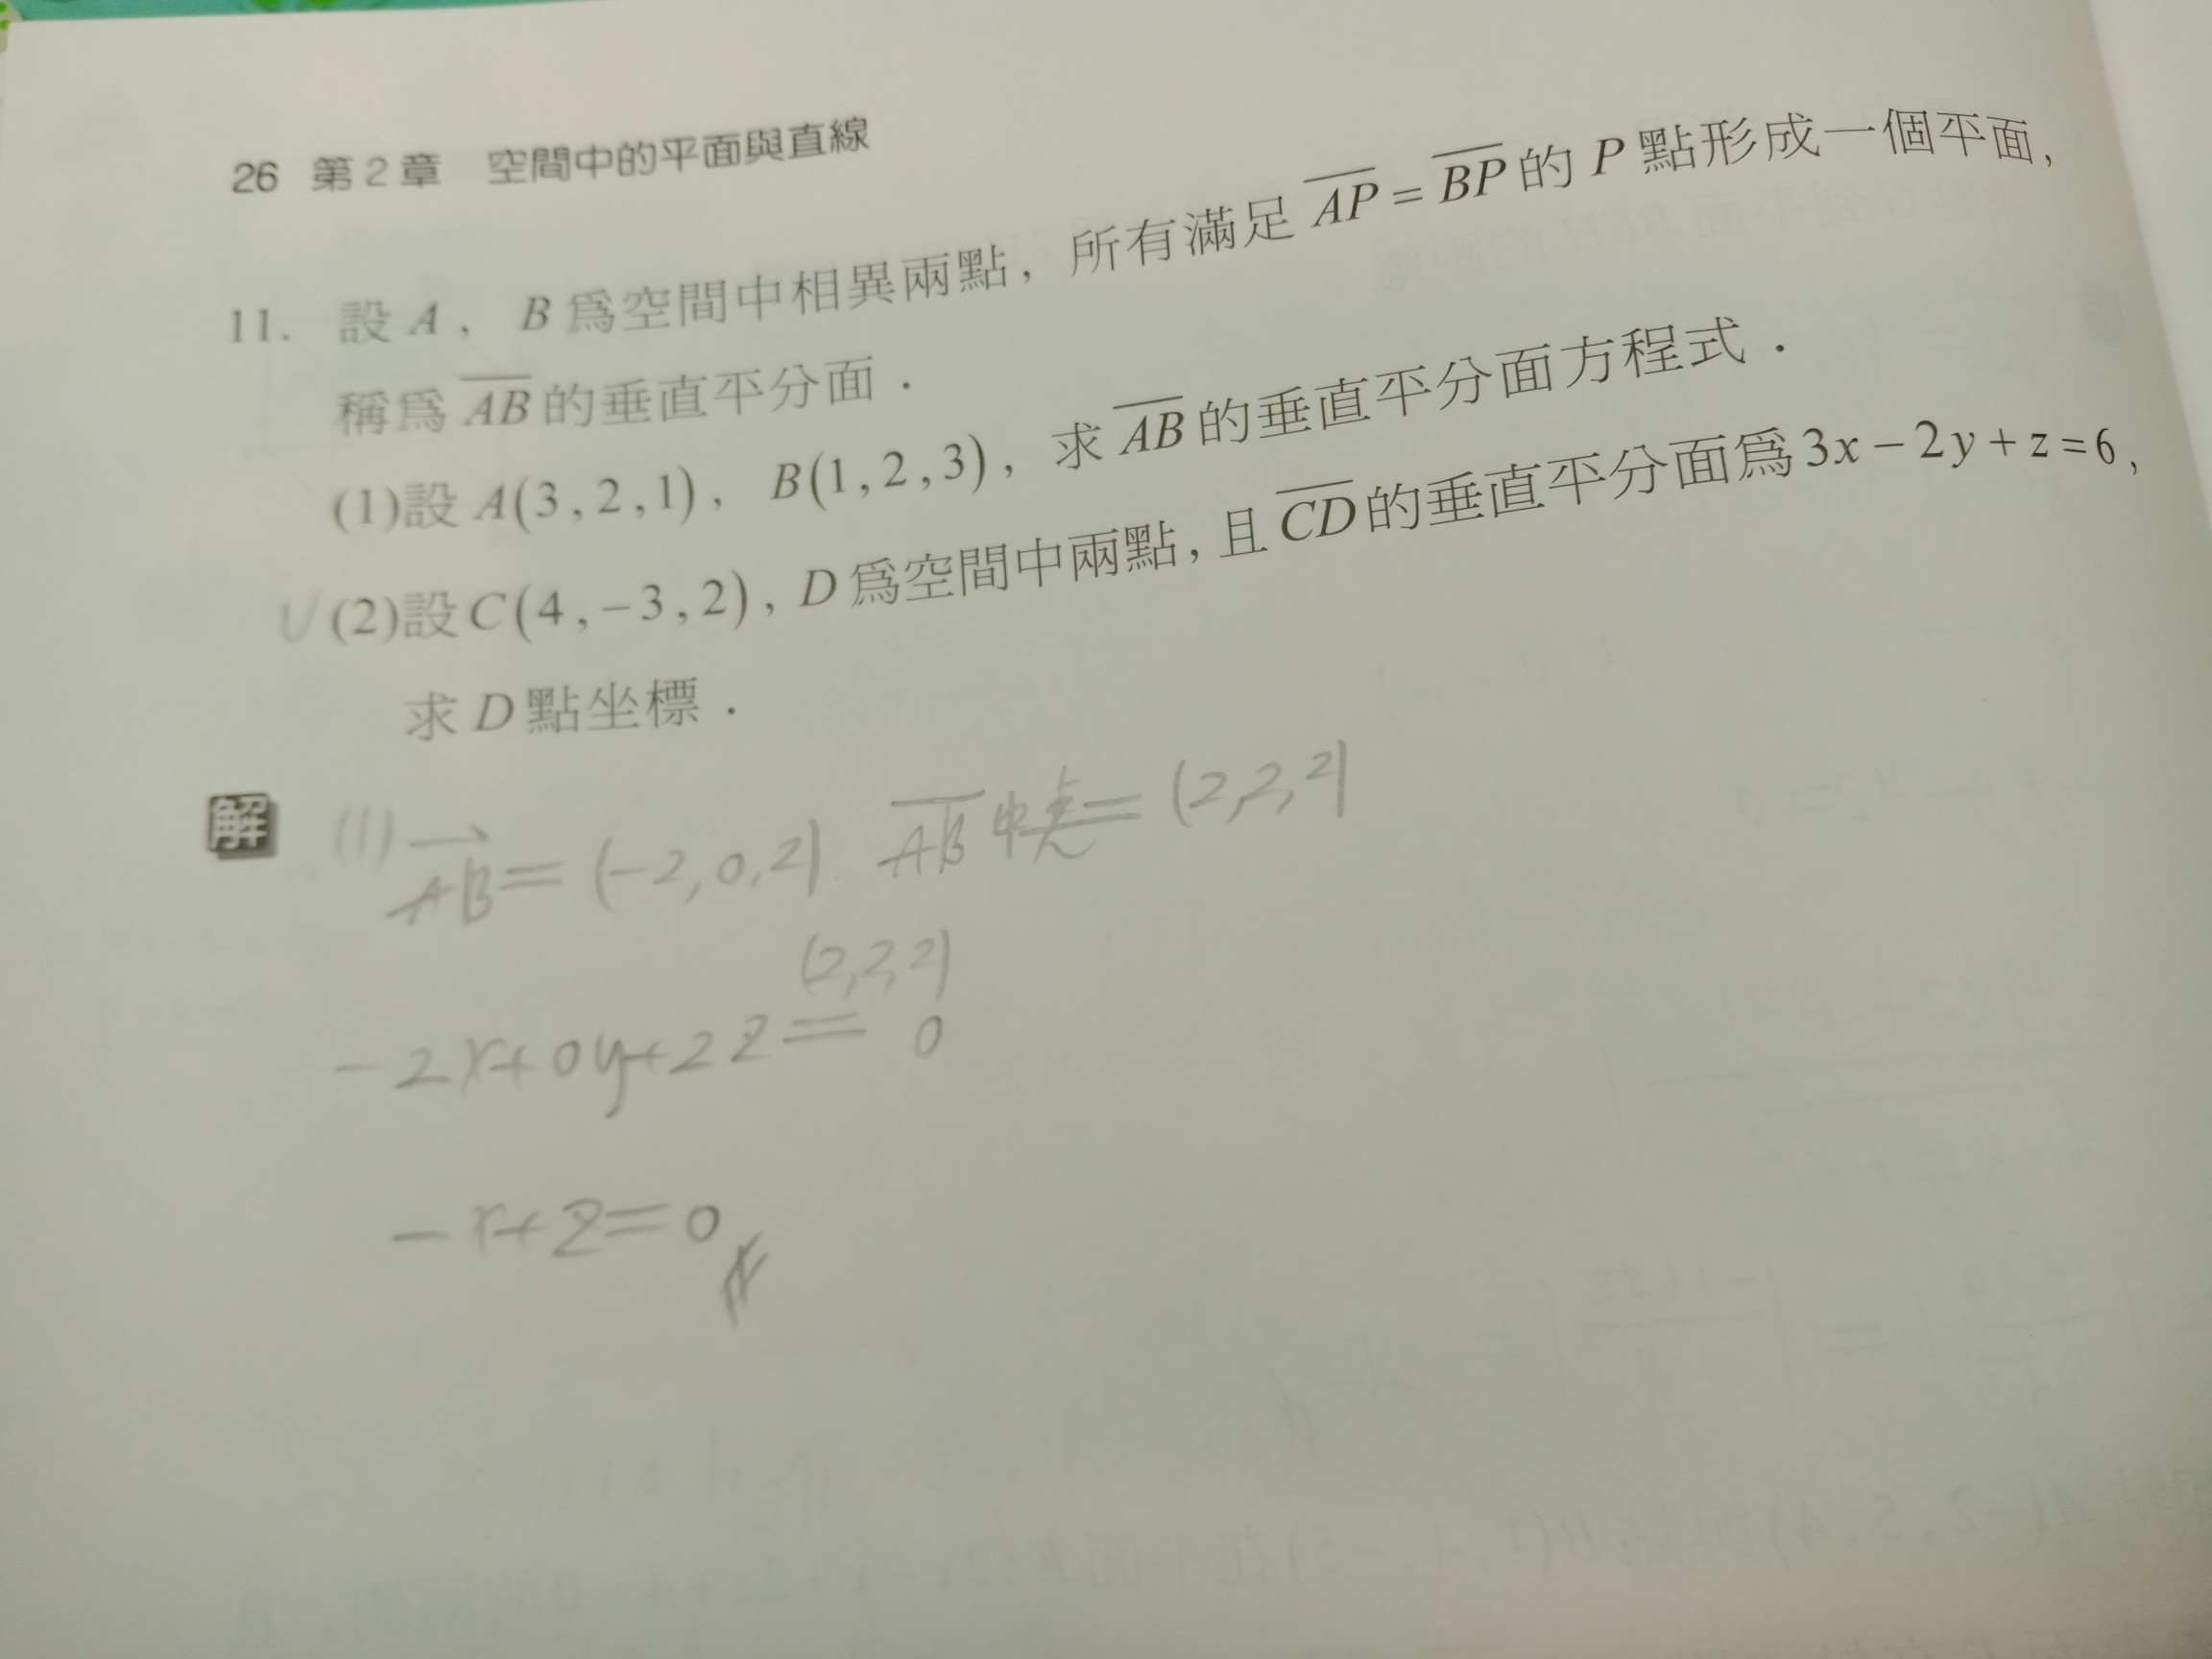 26 第2章 空間中的平面與直線
11. 設 A， B 為空間中相異兩點，所有滿足 \overline{AP} = \overline{BP} 的 P 點形成一個平面，
稱為 \overline{AB} 的垂直平分面．
(1)設 A(3,2,1)， B(1,2,3)，求 \overline{AB} 的垂直平分面方程式．
✓(2)設 C(4,-3,2)，D 為空間中兩點，且 \overline{CD} 的垂直平分面為 3x-2y+z=6，
求 D 點坐標．
解 (1) \overrightarrow{AB} = (-2,0,2) \overline{AB} 中點 = (2,2,2)
(2,2,2)
-2x+0y+2z = 0
-x+z=0